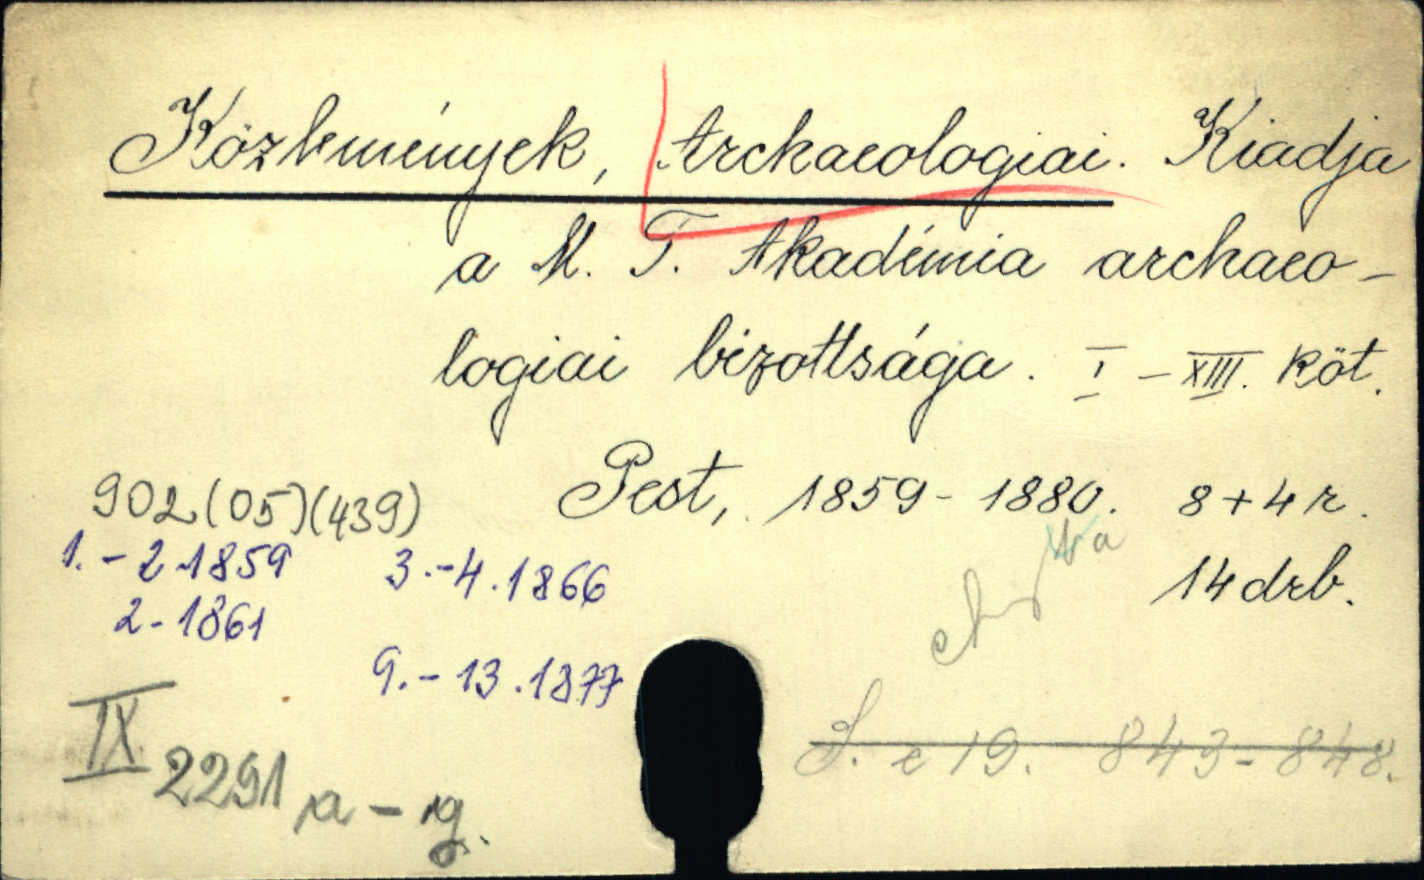 Közlemények, Archaeologiai. Kiadja
a M. T. Akadémia archaeo-
logiai bizottsága. I - XIII. köt.
Pest, 1859-1880. 8+4 r.
14 drb.
902(05)(439)
1.-2 1859 3.-4.1866
2-1861
9.-13.1877
IX 2291 a-g.
S. e 19. 843-848.